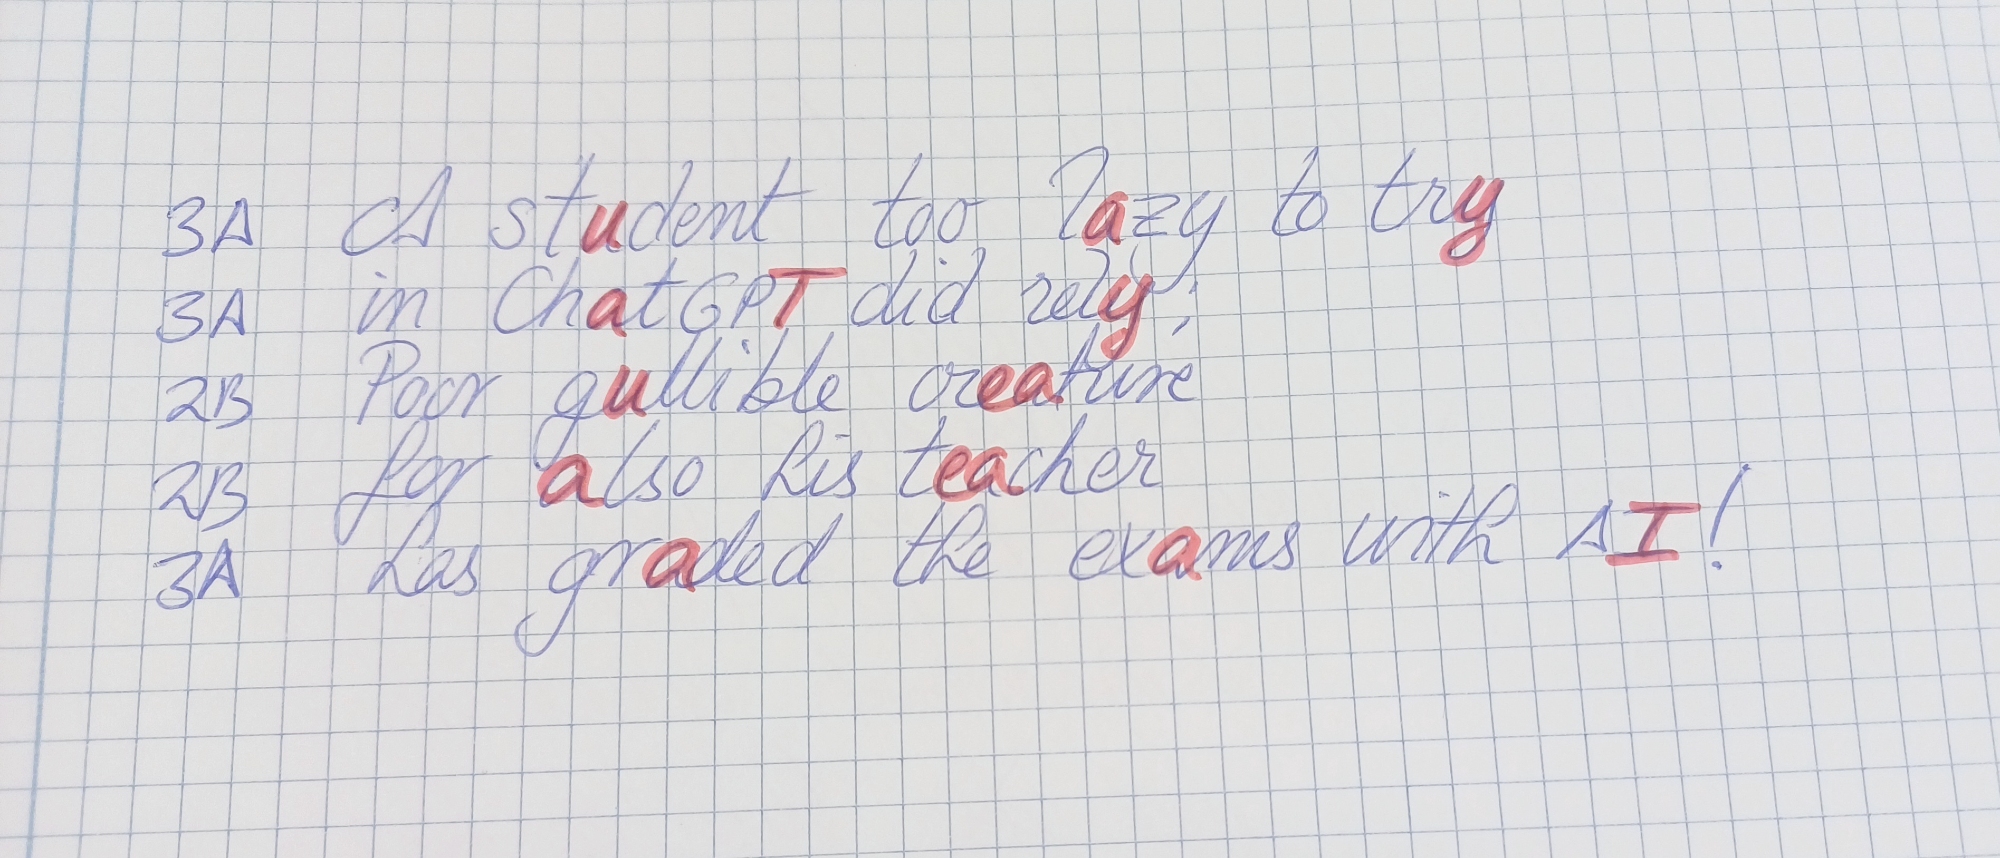 3A A student too lazy to try
3A in ChatGPT did rely;
2B Poor gullible creature
2B for also his teacher
3A has graded the exams with AI!